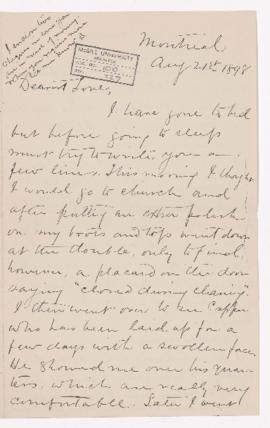 I enclose two
cheques in case you
are in need of money
Montreal
Aug 21st 1898
McGILL UNIVERSITY
Dearest Love,
I have gone to bed
but before going to sleep
must try to write you a
few lines. This morning I thought
I would go to church and
after putting an extra polish
on my boots and tops went down
at the double, only to find,
however, a placard on the door
saying "closed during cleaning".
I then went over to see
who has been laid up for a
few days with a swollen face.
He showed me over his quar-
ters, which are really very
comfortable. Later I went